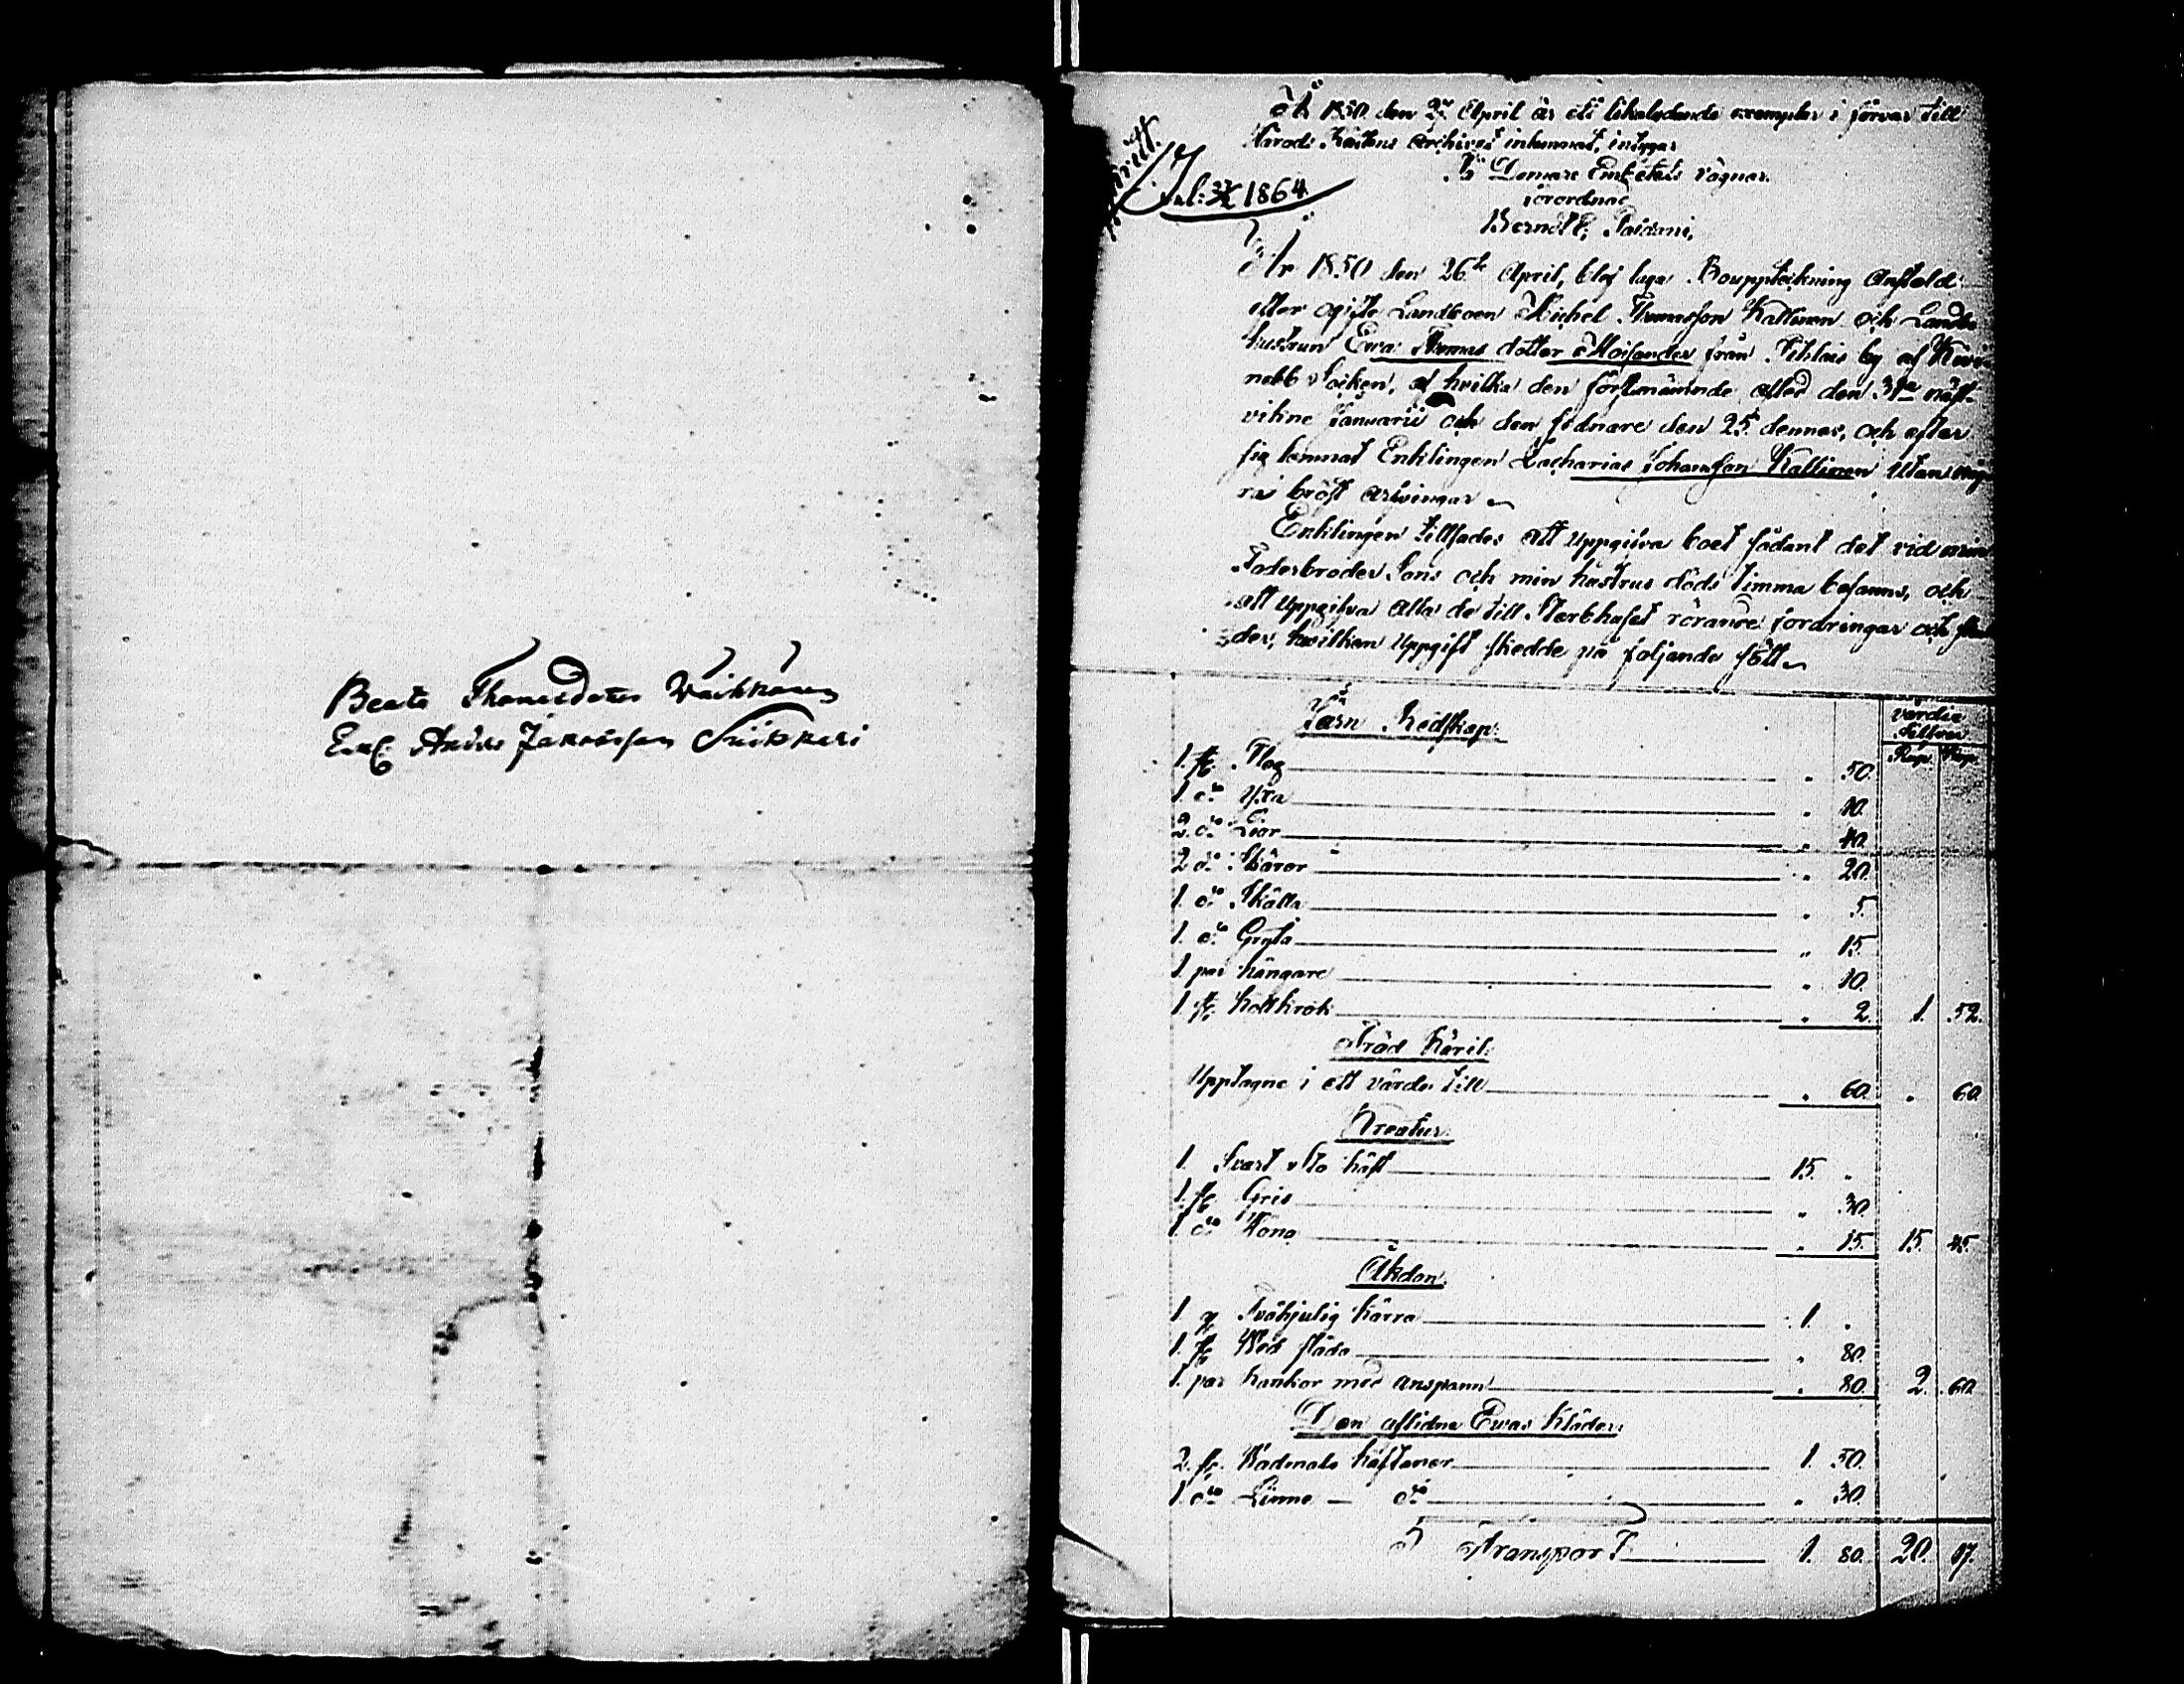 Beata Thomasdotter Väikkänen
Enl. Anders Jakobsson Suikkari
År 1850 den 27 April är ett likalydande exemplar i förvar till
Härads Rättens Archivet inlemnat, intygar
På Domare Embetets vägnar
förordnad
Berndt E. Paldani,
jul: 1864
År 1850 den 26te April, blef laga Bouppteckning Anstäld
efter ogifte Landboen Michel Thomasson Kallinen och Landbo
hustrun Ewa Thomas dotter Moisander från Sihlais by af
nebb Socken, af hvilka den förstnämnde afled den 31ta näst-
vikne Januarii och den sednare den 25te dennes, och efter
sig lemnat Enklingen Zacharias Johansson Kallinen utan någ-
ra bröst arfvingar
Enklingen tillsades att uppgifva boet sådant det vid min
Faderbroders Sons och min hustrus döds timma befanns, och
att uppgifva alla de till Sterbhuset rörande fordringar och skul-
der, hwilken uppgift skedde på följande sätt
Järn Redskap:
värdie Silfver
Rup. Kop.
1. st. Plog " 50.
1. do Yxa " 10.
2. do Liar " 40.
2 do Skäror " 20.
1. do Skälla " 5.
1. do Gryta " 15.
1. par hängare " 10.
1 st. kolkrok " 2. 1. 52.
Träd Käril:
Upptagne i ett värde till " 60. " 60.
Kreatur:
1. Svart Sto häst 15. "
1. st. Gris " 30.
1. do Höna " 15. 15. 45.
Åkdon:
1. st Tvåhjulig kärra 1. "
1. st Wed släda " 80.
1. par kankor med anspann " 80. 2. 60.
Den aflidna Ewas Kläder:
2. st. Wadmals kaftaner 1. 50.
1. do Linne — do " 30.
Transport 1. 80. 20. 17.